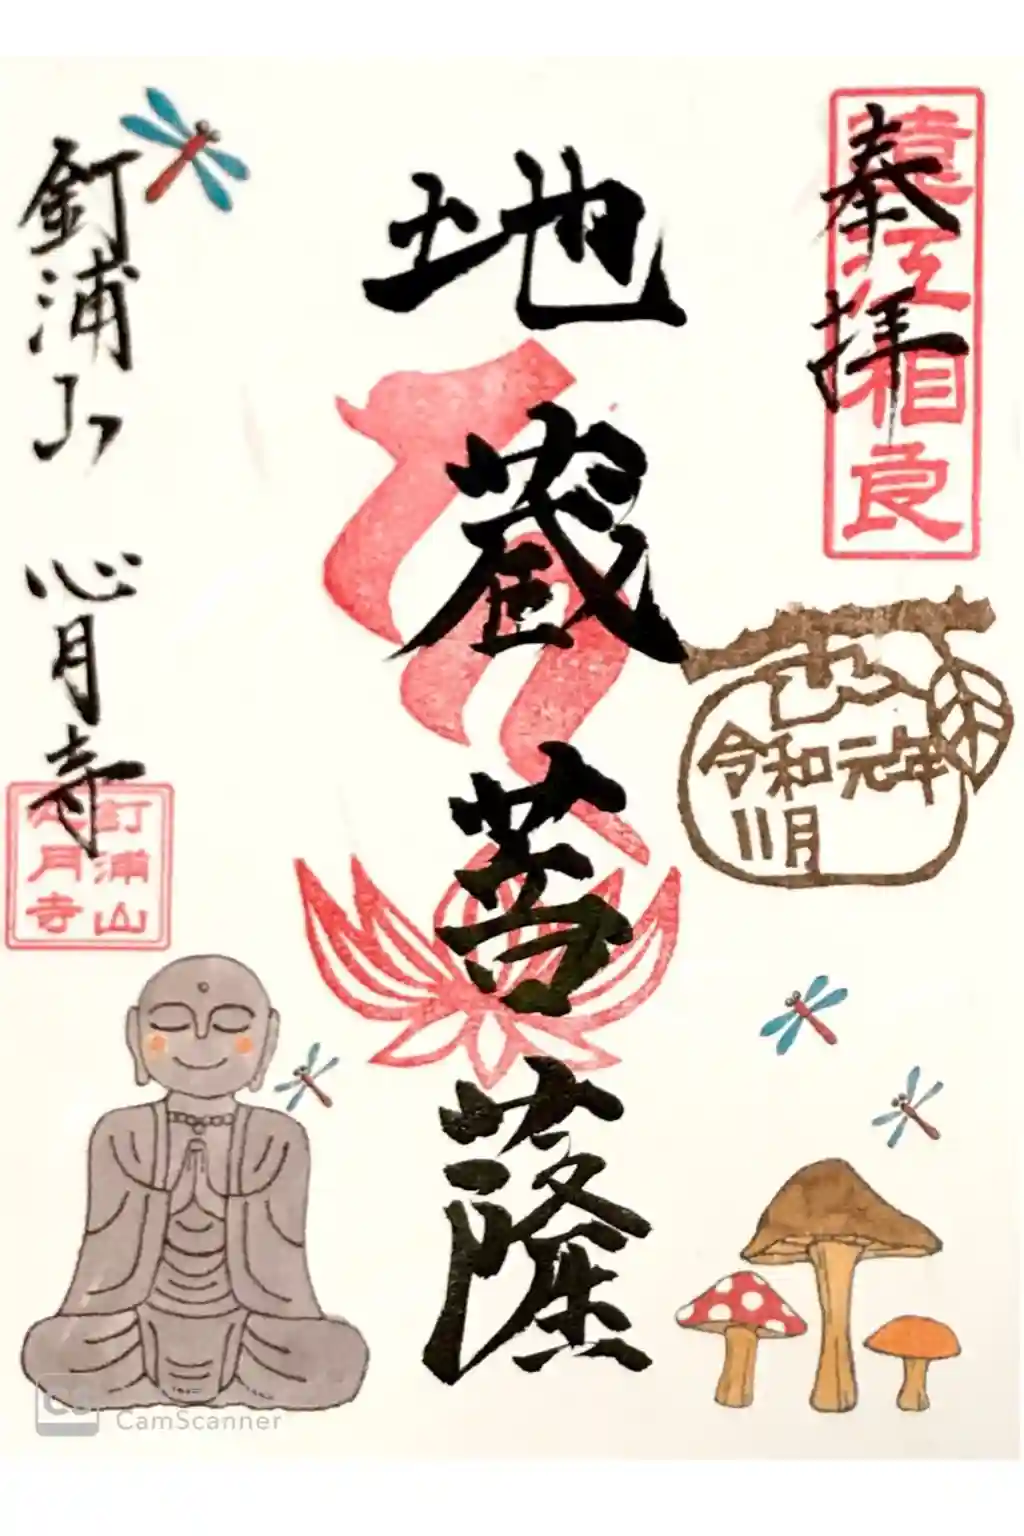 奉拝
遠江相良
地蔵菩薩
令和元年
11月
釘浦山 心月寺
釘浦山
心月寺
CS
CamScanner